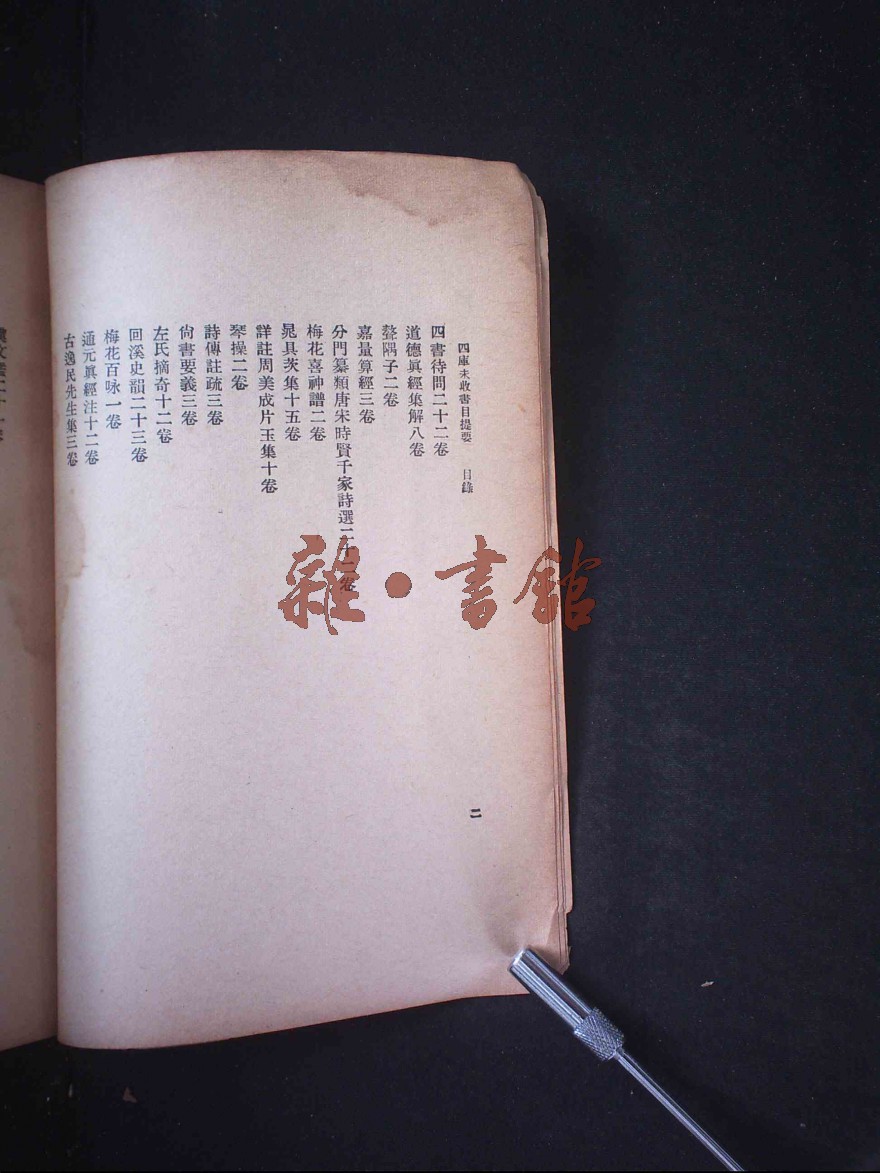 四庫未收書目提要 目錄
四書待問二十二卷
道德眞經集解八卷
聱隅子二卷
嘉量算經三卷
分門纂類唐宋時賢千家詩選二十二卷
梅花喜神譜二卷
晁具茨集十五卷
詳註周美成片玉集十卷
琴操二卷
詩傳註疏三卷
尙書要義三卷
左氏摘奇十二卷
回溪史韻二十三卷
梅花百咏一卷
通元眞經注十二卷
古逸民先生集三卷
二
雜·書館